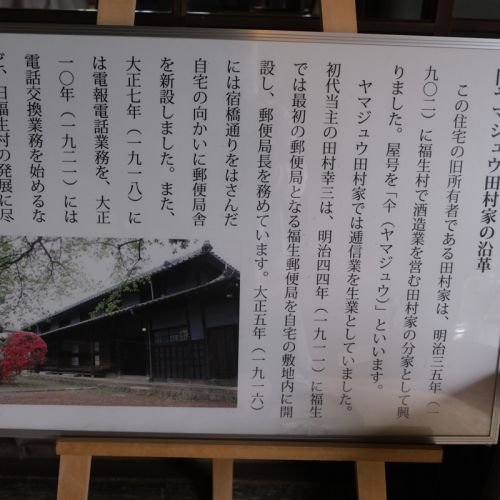 マジュウ田村家の沿革
この住宅の旧所有者である田村家は、明治三五年（一
九〇二）に福生村で酒造業を営む田村家の分家として興
りました。屋号を「仐（ヤマジュウ）」といいます。
ヤマジュウ田村家では逓信業を生業としていました。
初代当主の田村幸三は、明治四四年（一九一一）に福生
では最初の郵便局となる福生郵便局を自宅の敷地内に開
設し、郵便局長を務めています。大正五年（一九一六）
には宿橋通りをはさんだ
自宅の向かいに郵便局舎
を新設しました。また、
大正七年（一九一八）に
は電報電話業務を、大正
一〇年（一九二一）には
電話交換業務を始めるな
ど、旧福生村の発展に尽